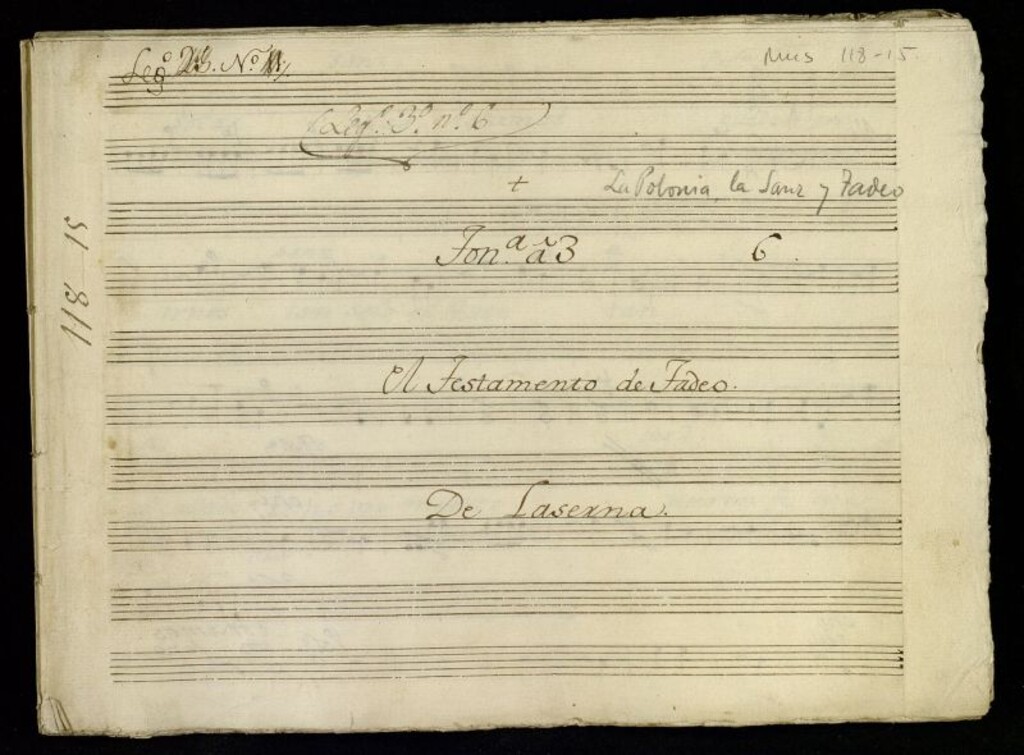 Leg.º 23. N.º 11.
Mus 118-15.
Leg.º 3.º n.º 6
+
La Polonia, la Sanz y Tadeo
Ton.ª à 3 6.
El Testamento de Tadeo.
De Laserna.
118-15